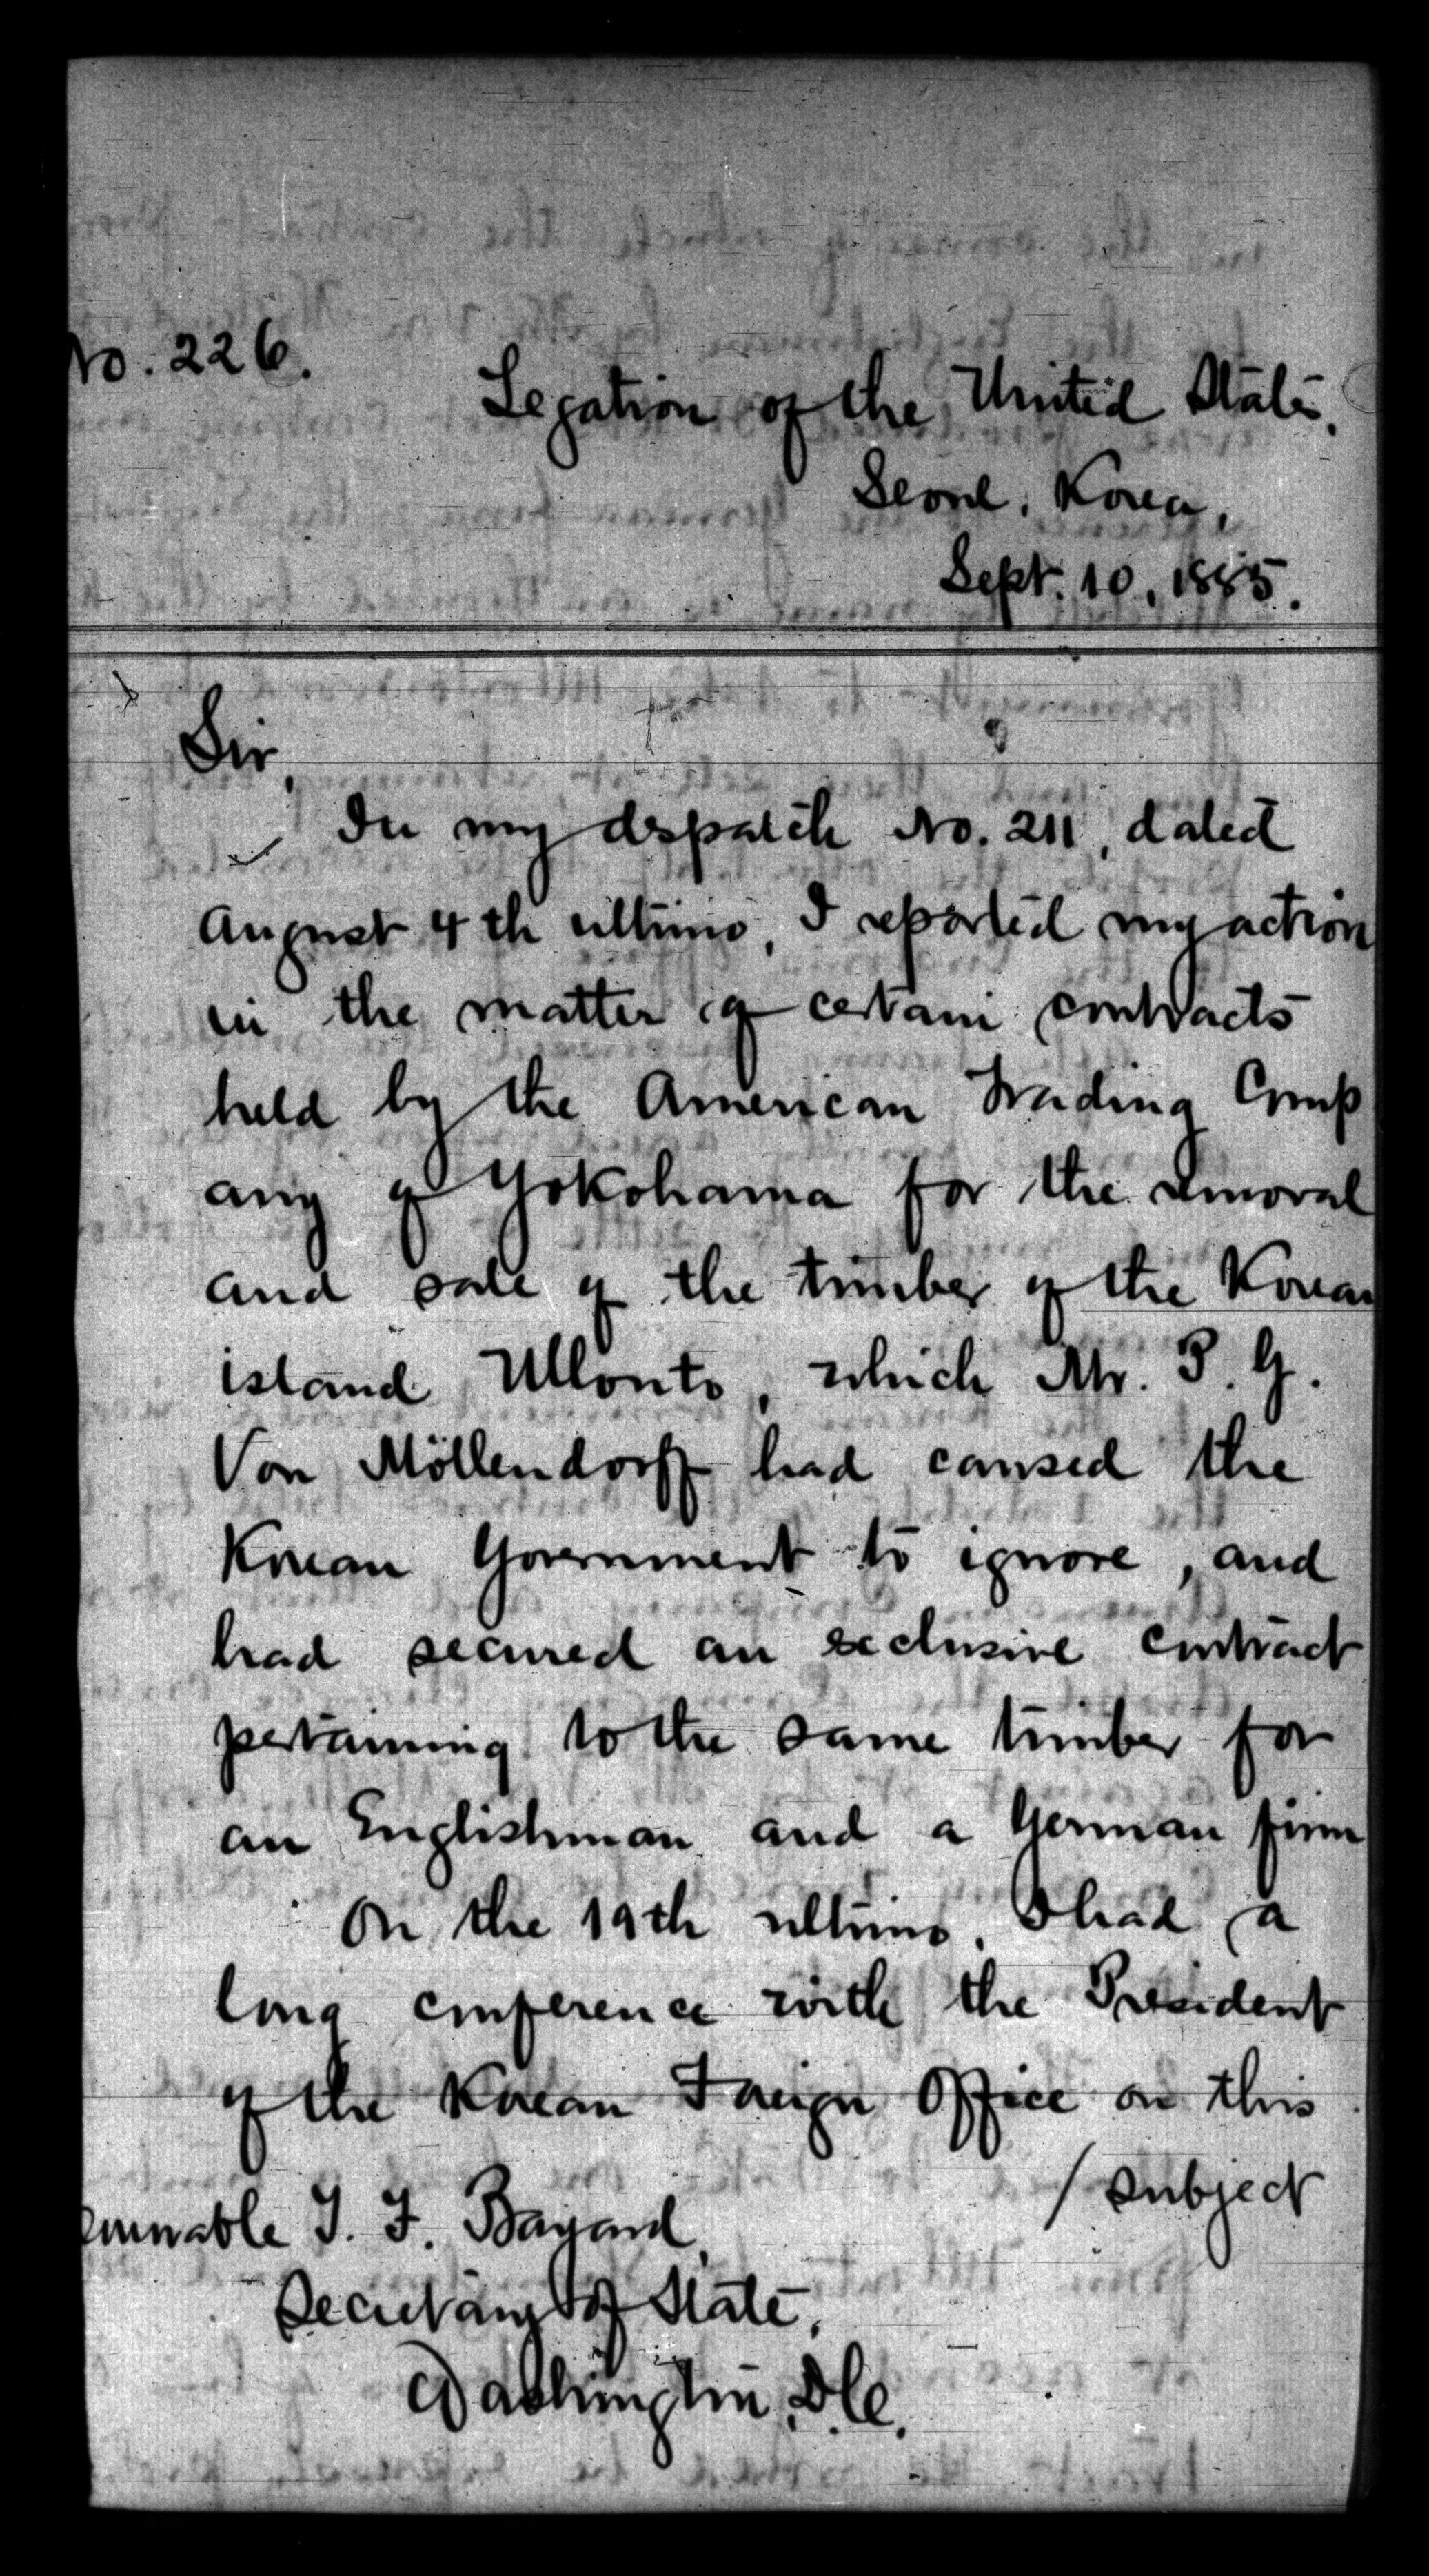 No. 226.
Legation of the United States,
Seoul, Korea,
Sept. 10, 1885.
Sir,
In my dispatch No. 211, dated
August 4th ultimo, I reported my action
in the matter of certain contracts
held by the American Trading Comp
any of Yokohama for the removal
and sale of the timber of the Korean
island Ullonto, which Mr. P. G.
Von Möllendorff had caused the
Korean Government to ignore, and
had secured an exclusive contract
pertaining to the same timber for
an Englishman and a German firm
On the 19th ultimo, I had a
long conference with the President
of the Korean Foreign Office on this
/ subject
onorable T. F. Bayard,
Secretary of State,
Washington, D.C.